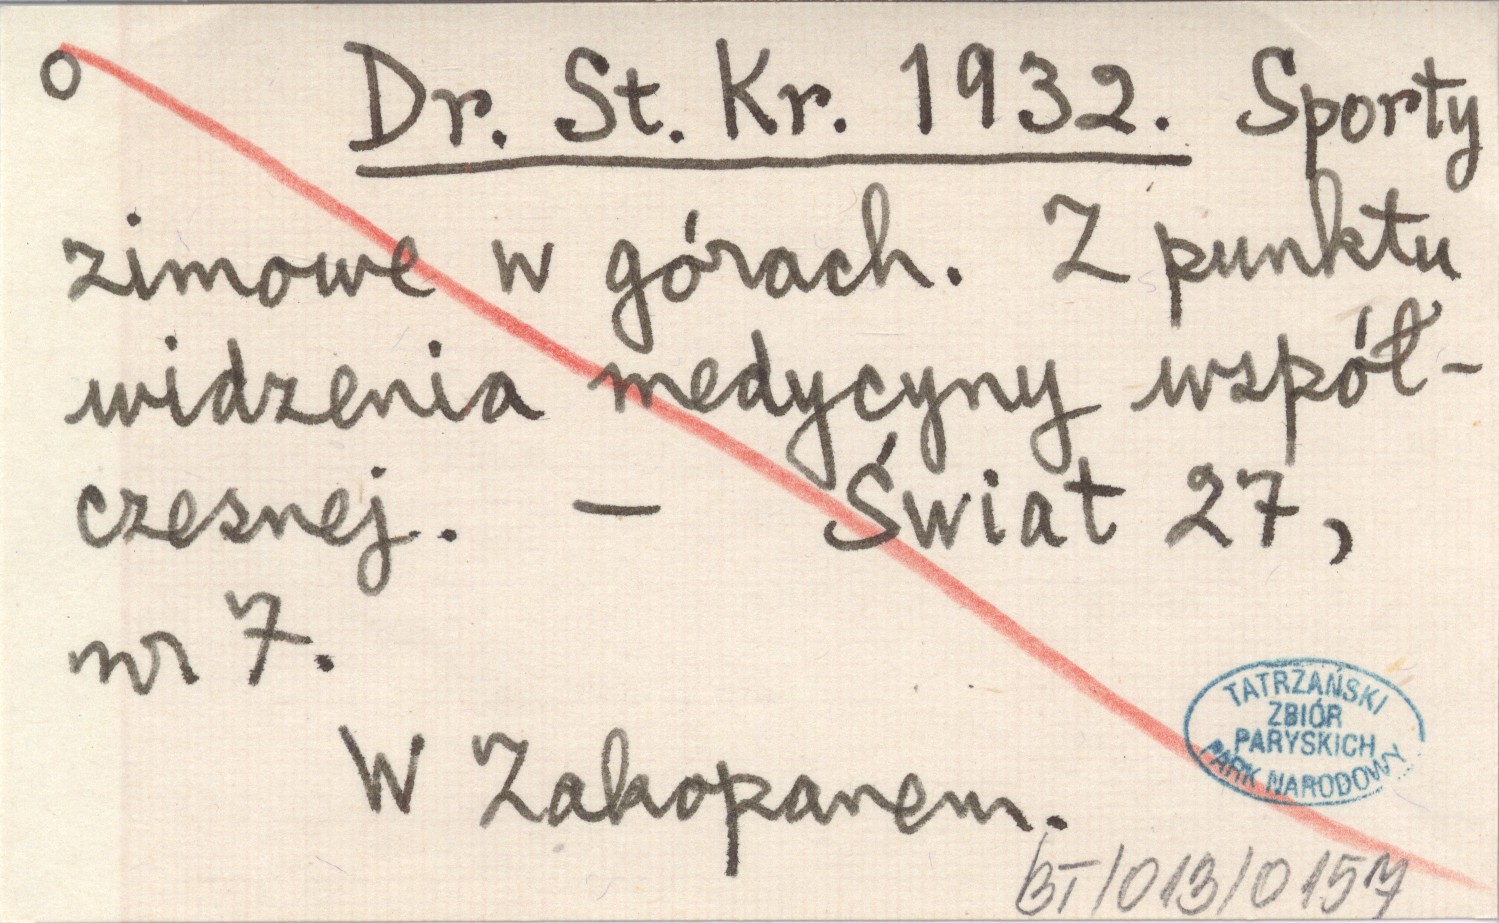 o Dr. St. Kr. 1932. Sporty
zimowe w górach. Z punktu
widzenia medycyny współ-
czesnej. – Świat 27,
nr 7.
W Zakopanem.
TATRZAŃSKI
ZBIÓR
PARYSKICH
PARK NARODOWY
BT/013/0157